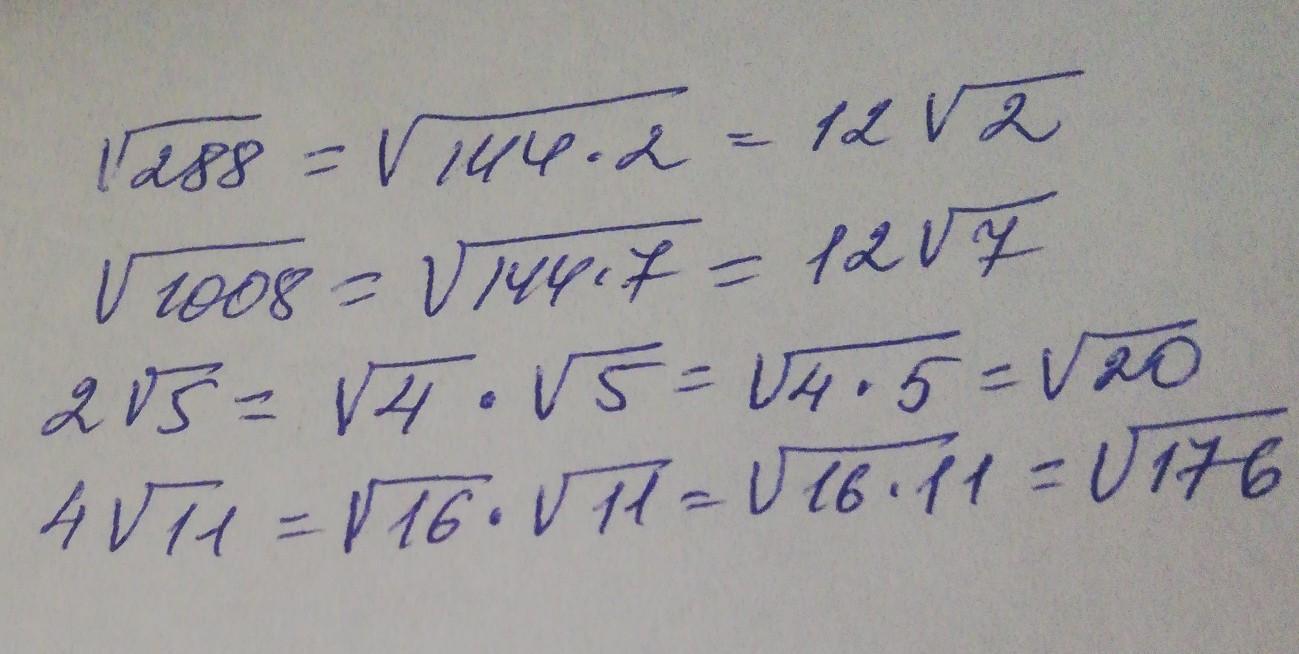 √288 = √144·2 = 12√2
√1008 = √144·7 = 12√7
2√5 = √4 · √5 = √4·5 = √20
4√11 = √16 · √11 = √16·11 = √176